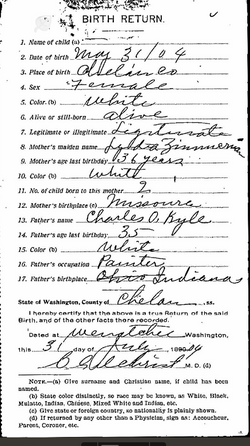 BIRTH RETURN.
1. Name of child (a)
2. Date of birth May 31/04
3. Place of birth Chelan co
4. Sex Female
5. Color (b) White
6. Alive or still-born alive
7. Legitimate or illegitimate Legitimate
8. Mother's maiden name Lydia Zimmerman
9. Mother's age last birthday 36 years
10. Color (b) White
11. No. of child born to this mother 2
12. Mother's birthplace (c) Missoura
13. Father's name Charles O. Kyle
14. Father's age last birthday 35
15. Color (b) White
16. Father's occupation Painter
17. Father's birthplace Ohio Indiana
State of Washington, County of Chelan ,ss.
I hereby certify that the above is a true Return of the said
Birth, and of the other facts there recorded.
Dated at Wenatchee Washington,
this 31 day of July 04
C Gilchrist M.D. (d)
NOTE.—(a) Give surname and Christian name, if child has been
named.
(b) State color distinctly, so race may be known, as White, Black,
Mulatto, Indian, Chinese, Mixed White and Indian, etc.
(c) Give state or foreign country, so nationality is plainly shown.
(d) If returned by any other than a Physician, sign as: Accoucheur,
Parent, Coroner, etc.